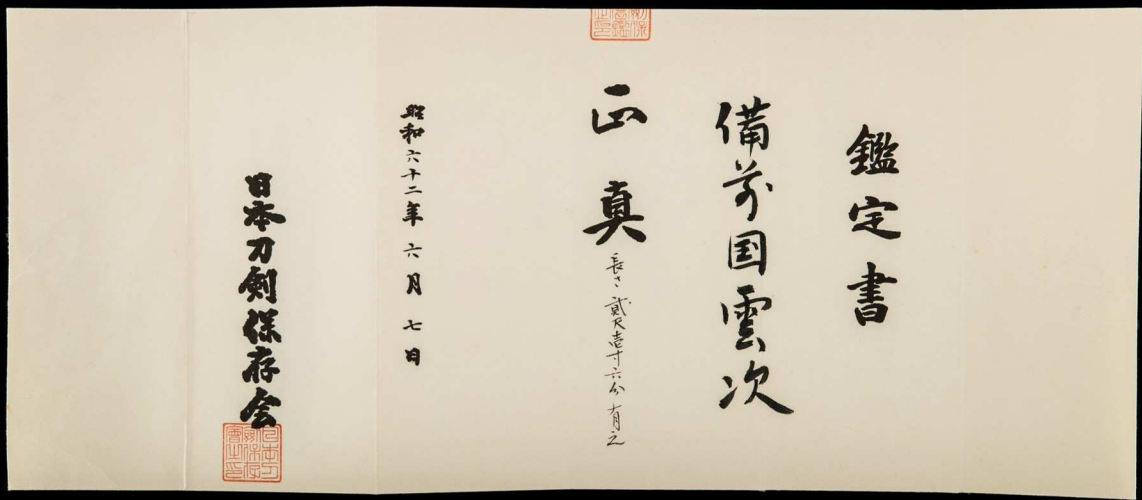 鑑定書
備前国雲次
正真
長さ貮尺壱寸六分有之
昭和六十二年六月七日
日本刀剣保存会